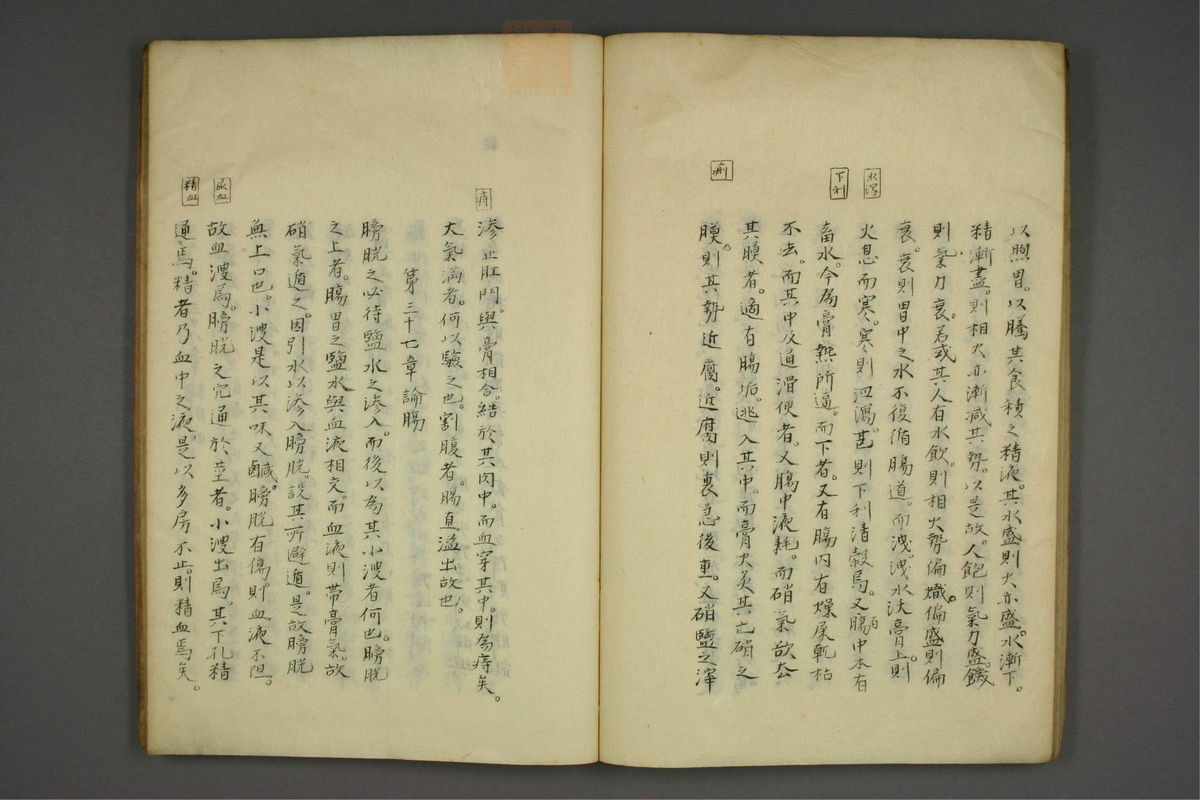 以煦胃。以騰其食積之精液。其水盛則火亦盛。水漸下。
精漸盡。則相火亦漸減其勢。以是故。人飽則氣力盛。饑
則氣力衰。若或其人有水飲。則相火勢偏熾。偏盛則偏
衰。衰則胃中之水不復循腸道。而洩。洩水沃膏上。則
水瀉
火息而寒。寒則泄瀉。甚則下利清穀焉。又腸中本有
下利
畜水。今為膏熱所逼。而下者。又有腸內有燥屎軏枯
不去。而其中反通滑便者。又腸中液耗。而硝氣欲去
其膜者。適有腸垢。逃入其中。而膏火炙其亡硝之
痢
膜。則其勢近腐。近腐則裏急後重。又硝鹽之滓
痔
滲止肛門。與膏相合。結於其肉中。而血穿其中。則為痔矣。
大氣滿者。何以驗之也。割腹者。腸直溢出故也。
第三十七章論腸
膀胱之必待鹽水之滲入。而後以為其小溲者何也。膀胱
之上者。腸胃之鹽水與血液相交。而血液則帶膏氣。故
硝氣遁之。因引水以滲入膀胱。說其所避遁。是故膀胱
無上口也。小溲是以其味又鹹。膀胱有傷。則血液不阻。
尿血
故血溲焉。膀胱之宂通於莖者。小溲出焉。其下孔精
精血
通焉。精者乃血中之液。是以多房不止。則精血焉矣。